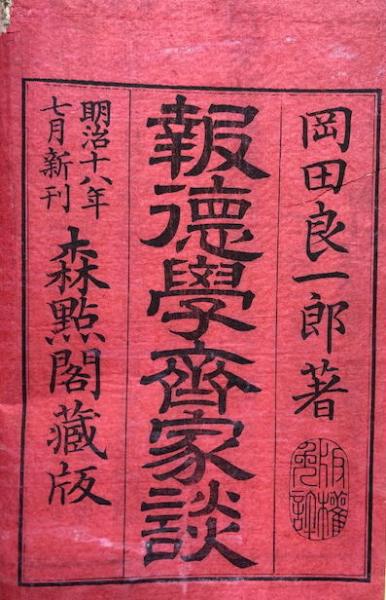 岡田良一郎著
版權免許
報德學齊家談
明治十八年
七月新刊
森點閣藏版